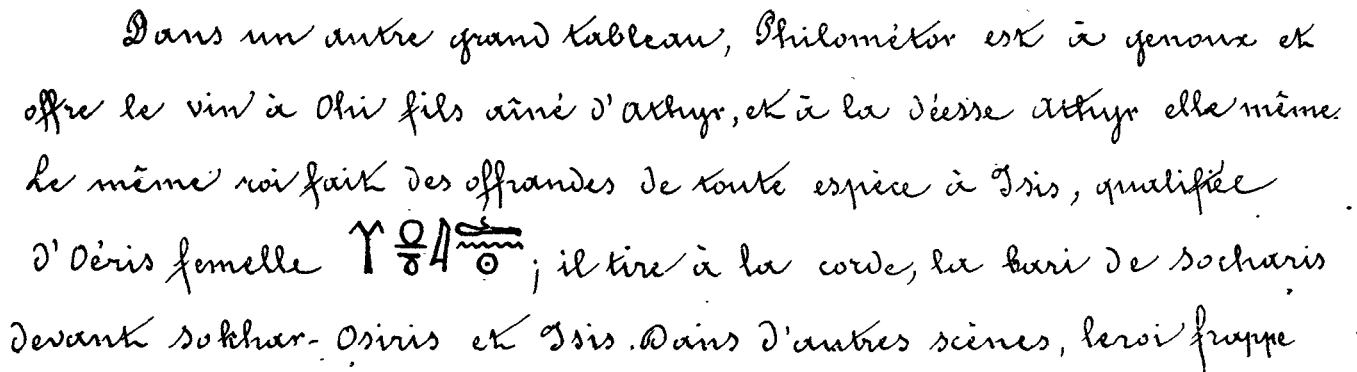 Dans un autre grand tableau, Philométor est à genoux et
offre le vin à Ohi fils aîné d'Athyr, et à la déesse Athyr elle même.
Le même roi fait des offrandes de toute espèce à Isis, qualifiée
d'Oëris femelle ; il tire à la corde, la bari de Socharis
devant Sokhar-Osiris et Isis. Dans d'autres scènes, le roi frappe